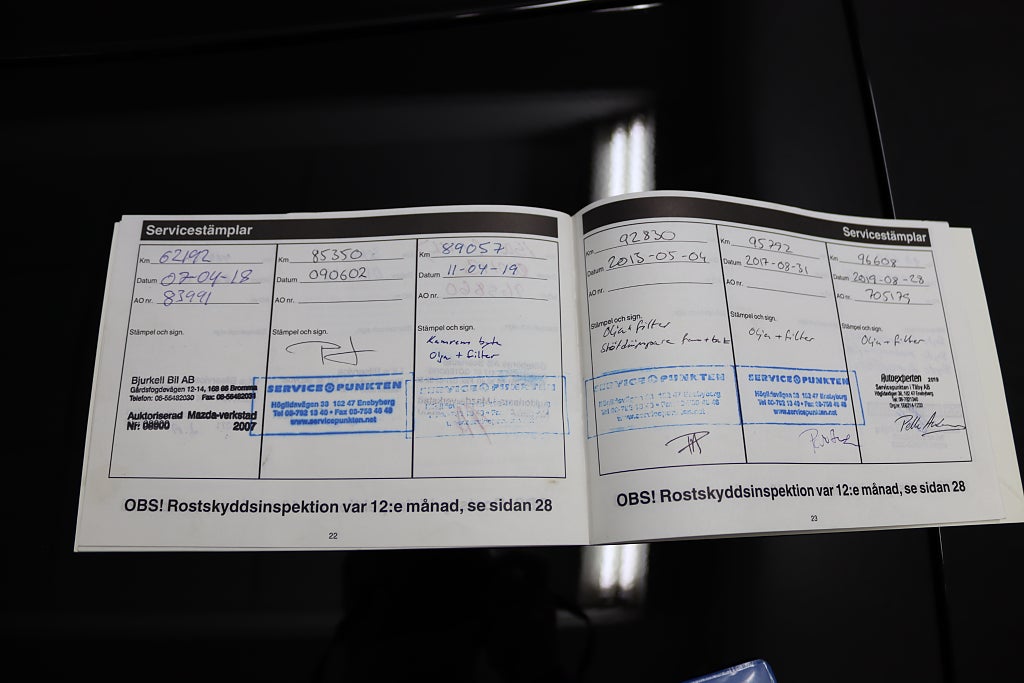 Servicestämplar
Km 62192
Datum 07-04-18
AO nr. 83991
Stämpel och sign.
Bjurkell Bil AB
Gårdsfogdevägen 12-14, 168 66 Bromma
Telefon: 08-56482030 Fax: 08-56482031
Auktoriserad Mazda-verkstad
2007
Km 85350
Datum 090602
AO nr.
Stämpel och sign.
SERVICE PUNKTEN
Höglidsvägen 33 182 47 Enebyberg
www.servicepunkten.net
Km 89057
Datum 11-04-19
AO nr.
Stämpel och sign.
Kamrem byte
Olja + filter
OBS! Rostskyddsinspektion var 12:e månad, se sidan 28
22
Servicestämplar
Km 92830
Datum 2015-05-04
AO nr.
Stämpel och sign.
Olja + filter
Stötdämpare fram + bak
SERVICE PUNKTEN
Km 95792
Datum 2017-08-31
AO nr.
Stämpel och sign.
Olja + filter
SERVICE PUNKTEN
Höglidsvägen 33 182 47 Enebyberg
www.servicepunkten.net
Km 96608
Datum 2019-08-28
AO nr. 705179
Stämpel och sign.
Olja + filter
Autoexperten 2019
Servicepunkten i Täby AB
OBS! Rostskyddsinspektion var 12:e månad, se sidan 28
23